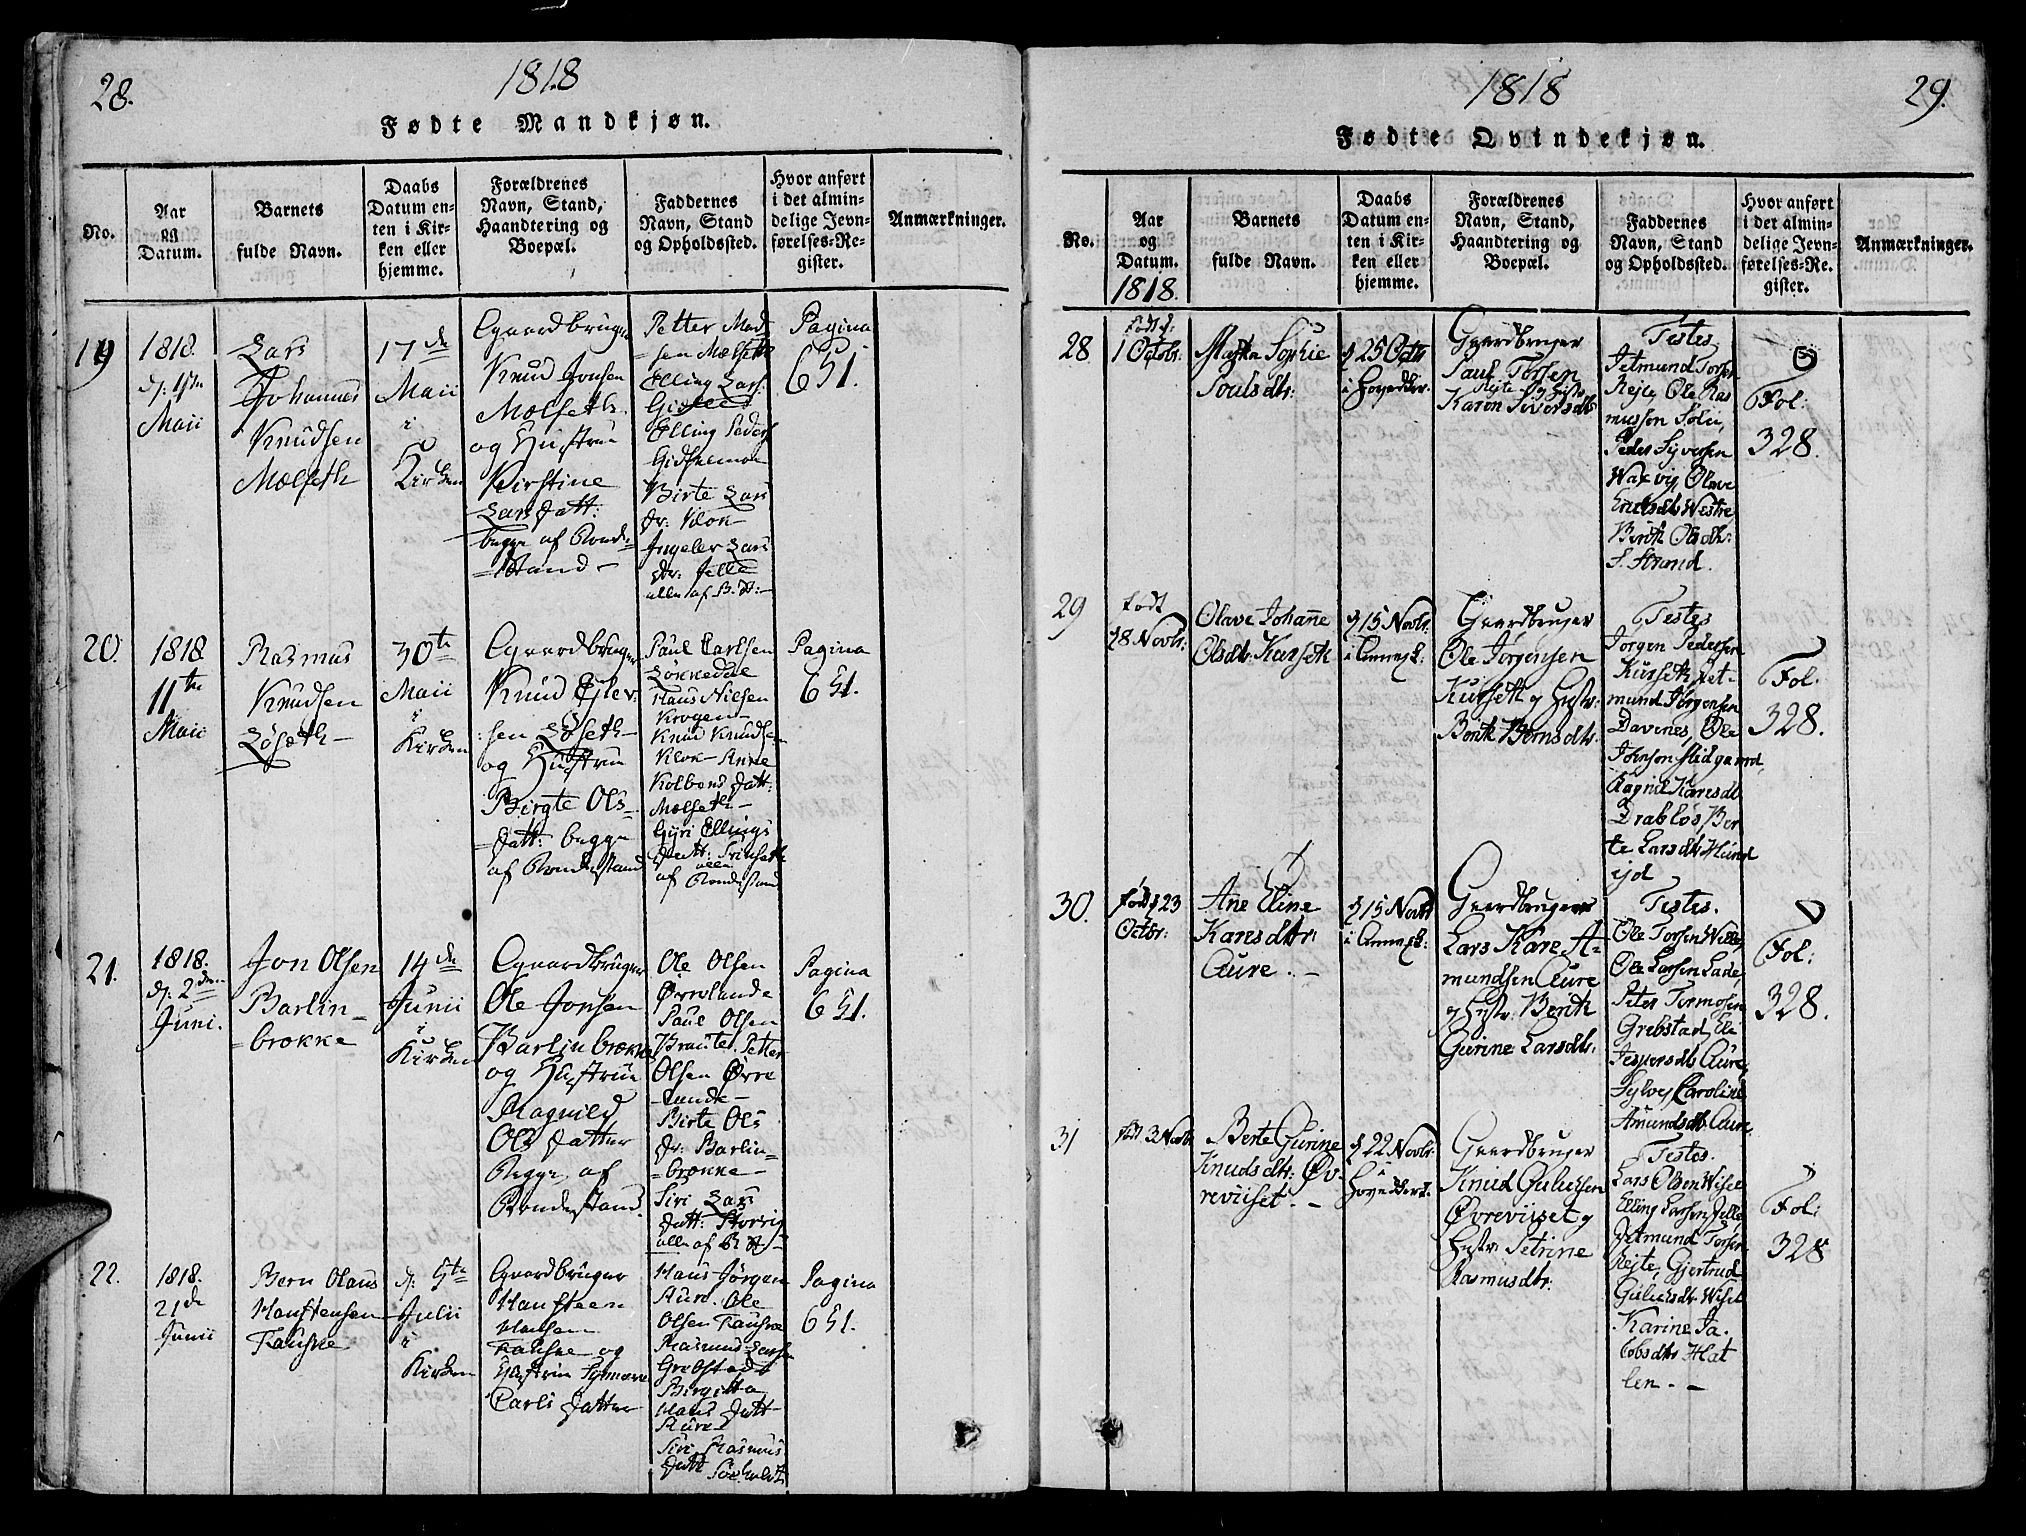 28.
1818
Fødte Mandkjøn.
No.
Aar
og
Datum.
Barnets
fulde Navn.
Daabs
Datum en-
ten i Kir-
ken eller
hjemme.
Forældrenes
Navn, Stand,
Haandtering og
Boepæl.
Faddernes
Navn, Stand
og Opholdssted.
Hvor anført
i det almin-
delige Jevn-
førelses-Re-
gister.
Anmærkninger.
19
1818.
Maii
Lars
Johannes
Knudsen
Molseth
17de
Maii
i
Kirken
Gaardbruger
Knud Jonsen
Molseth.
og Hustrue
Kirstine
Lars Datt:
begge af Bonde-
=stand-
Petter Mad
=sen Molseth
Elling Lars.
Elling Peders
Gidskemoe
Birte Lars
Dr: Klok-
Lars
Dr: Jelle
alle af B. St:-
Pagina
651.
20.
1818
11te
Maii
Rasmus
Knudsen
Løseth-
30te
Maii
i
Kirken
Gaardbruger
Knud Ejler
:sen Løseth-
og Hustrue
Birgte Ols-
=Datt: begge
af Bondestand
Paul Carlsen
Løkkedal
Hans Nielsen
Krogen-
Knud Knudse-
Klok- Anne
Kolbens Datt:
Molseth-
Gyri Ellings
Datt:
alle
af Bondestand
Pagina
651.
21.
1818.
d: 2den
Juni.
Jon Olsen
Barlin-
=brokke
14de
Junii
i
Kirken
Gaardbruger
Ole Jonsen
Barlinbrokke
og Hustrue
Ragnild
Ols Datter
Begge af
Bondestand.
Ole Olsen
Ørrelunde
Paul Olsen
Brauter. Petter
Olsen Ørre
=lunde-
Birte Ols
Dr: Barlin-
=brokke-
Siri Lars
Datt:
alle af B St-
Pagina
651.
22.
1818.
21de
Junii
Bern Olaus
Hansteensen
Fauske
d: 5te
Julii
i
Kirken
Gaardbruger
Hansteen
Hansen
Fauske og
Hustrue
Carls Datter
Hans Jørgen
Aure. Ole
Olsen Fauske
Rasmus Larsen
Grebstad
Birgitta
Hans Datt-
Aure-
Siri Rasmus
Datt Søeholdt
Pagina
651.
1818
29.
Fødte Qvindekjøn.
No.
Aar
og
Datum.
1818.
Barnets
fulde Navn.
Daabs
Datum en-
ten i Kir-
ken eller
hjemme.
Forældrenes
Navn, Stand,
Haandtering og
Boepæl.
Faddernes
Navn, Stand
og Opholdssted.
Hvor anført
i det almin-
delige Jevn-
førelses-Re-
gister.
Anmærkninger.
28
født d:
1 Octobr:
Sophie
Poulsdtr:
25 Octr
i
Gaardbruger
Paul Torsen
Rejte og Hustr
Karen Siversdtr
Testes
Jetmund Torsen
Rejte, Ole Ras
mussen Solii,
Peder Syversen
Waxvig, Olave
Westre
Berit Olsdtr:
S. Strand.
Fol:
328.
29
født
8 Novbr:
Olave Johanne
Olsdtr Kurseth
15 Novbr:
i
Gaardbruger
Ole Jørgensen
Kurseth og Hustr:
Berit Berntsdtr.
Testes
Jørgen Pedersen
Kurseth, Jet-
mund Jørgensen
Davenes, Ole
Johnsen Midgaard,
Ragnil Karesdtr
Drabløs, Ber
te Larsdtr Hund
ejd
Fol.
328.
30.
født 23
Octbr:
Ane Eline
Karesdtr:
Aure. -
15 Novbr
i
Gaardbrugere
Lars Kåre A-
mundsen Aure
og Hustr: Berit
Gurine Larsdtr:
Testes.
Ole Torsen
Ole Larsen Lade,
Peter Tormosen
Grebstad, Eli
Jespersdtr Aure,
Sylvej Caroline
Amundsdtr Aure.
Fol:
328.
31
født 3 Novbr
Berte Gurine
Knudsdtr: Øv-
reviiset. -
22 Novbr:
i
Gaardbruger
Knud Guliksen
Øvreviiset og
Hustr: Petrine
Rasmusdtr:
Testes.
Lars Olsen Wiset
Elling Larsen Jelle
Jetmund Torsen
Rejte, Gjertrud
Guliksdtr Wiset
Karine Ja-
cobsdtr Hat
len. -
Fol:
328